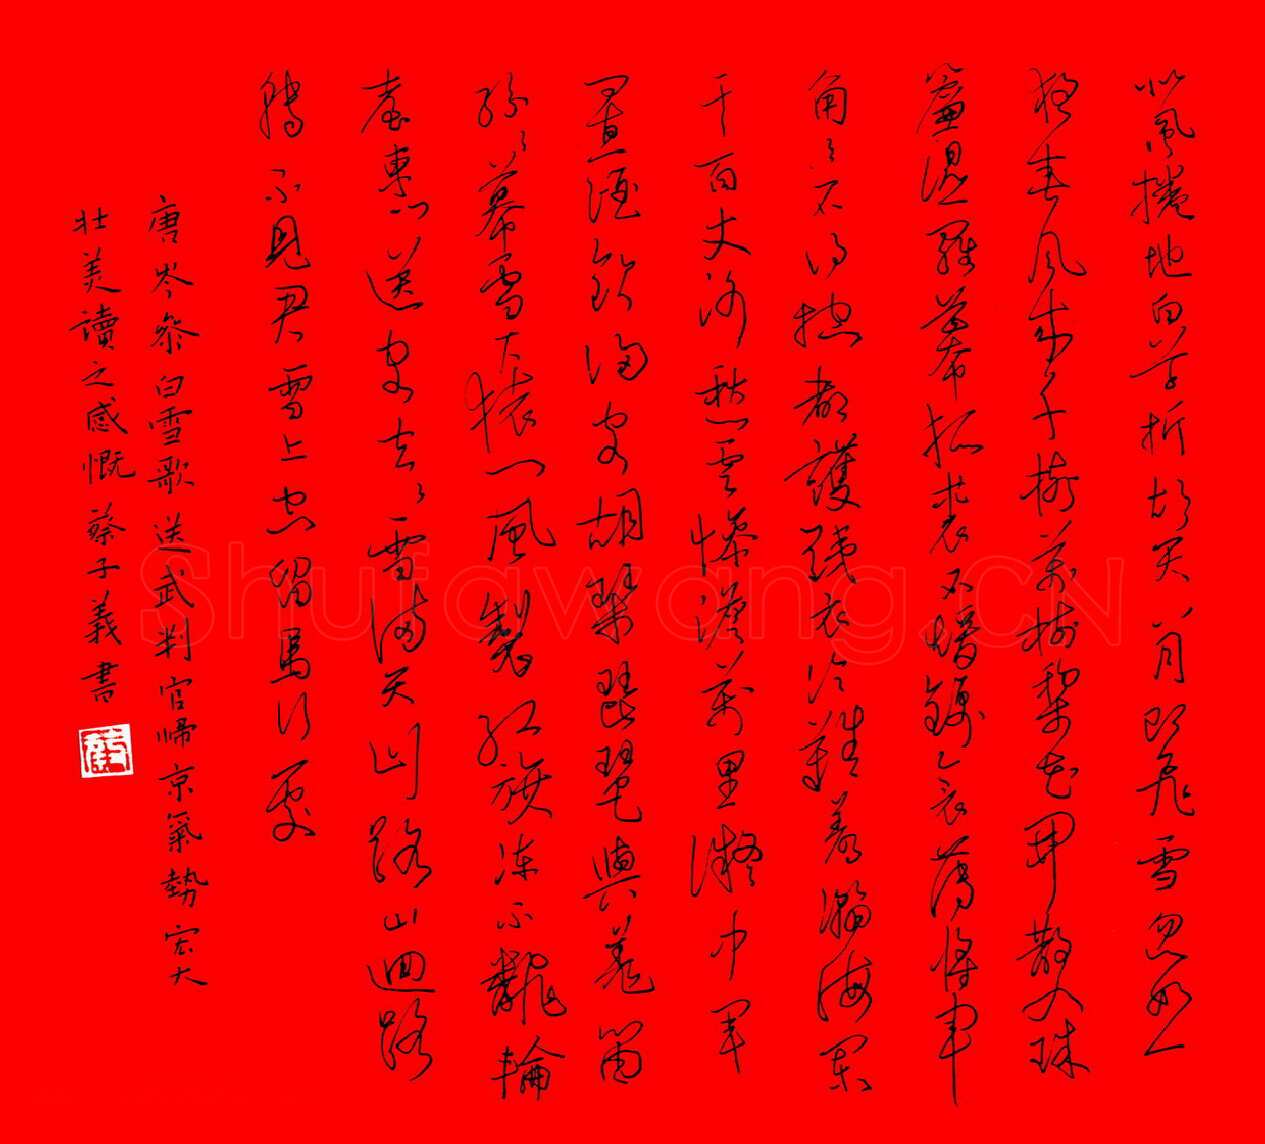 北風捲地白草折胡天八月即飛雪忽如一
夜春風來千樹萬樹梨花開散入珠
簾濕羅幕狐裘不煖錦衾薄將軍
角弓不得控都護鐵衣冷難着瀚海闌
干百丈冰愁雲慘淡萬里凝中軍
置酒飲歸客胡琴琵琶與羌笛
紛紛幕雪下轅門風製紅旗凍不翻輪
臺東門送客去時雪滿天山路山迴路
轉不見君雪上空留馬行處
唐岑參白雪歌送武判官歸京氣勢宏大
壯美讀之感慨蔡子義書
Shufawang.CN